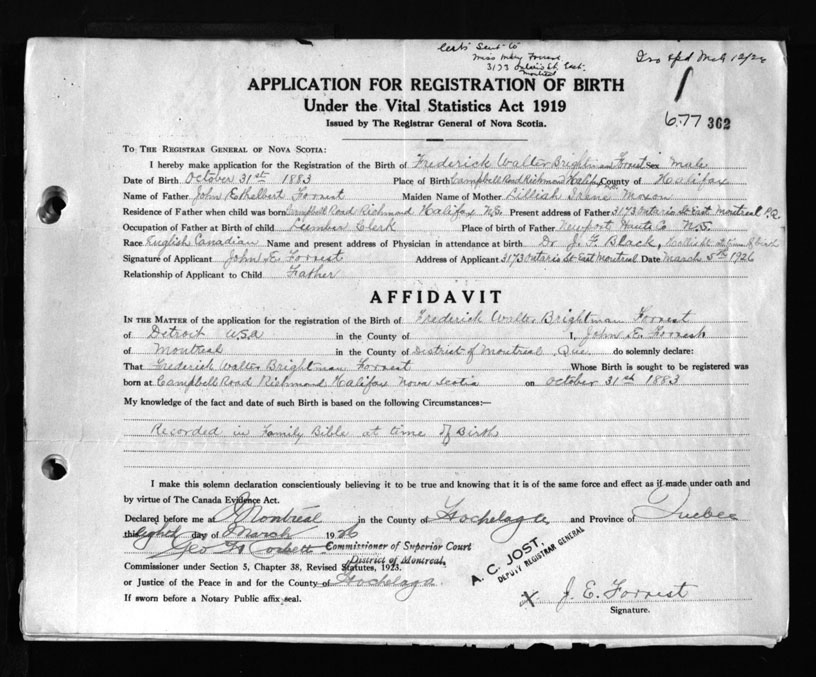 Cert. Sent to
Miss Mary Forrest
3173 Ontario St. East.
Montreal
APPLICATION FOR REGISTRATION OF BIRTH
Under the Vital Statistics Act 1919
Issued by The Registrar General of Nova Scotia.
677 362
TO THE REGISTRAR GENERAL OF NOVA SCOTIA:
I hereby make application for the Registration of the Birth of Frederick Walter Brightman Forrest Sex Male
Date of Birth October 31st 1883 Place of Birth Campbell Road Richmond Halifax County of Halifax
Name of Father John Ethelbert Forrest Maiden Name of Mother Lillian Irene
Residence of Father when child was born Campbell Road Richmond Halifax N.S. Present address of Father 3173 Ontario St East Montreal P.Q.
Occupation of Father at Birth of child Lumber Clerk Place of birth of Father Newport Hants Co N.S.
Race English Canadian Name and present address of Physician in attendance at birth Dr J. F. Black,
Signature of Applicant John E. Forrest Address of Applicant 3173 Ontario St East Montreal Date March 5th 1926
Relationship of Applicant to Child Father
AFFIDAVIT
IN THE MATTER of the application for the registration of the Birth of Frederick Walter Brightman Forrest
of Detroit USA in the County of I, John E. Forrest
of Montreal in the County of District of Montreal, Que. do solemnly declare:
That Frederick Walter Brightman Forrest Whose Birth is sought to be registered was
born at Campbell Road Richmond Halifax Nova Scotia on October 31st 1883
My knowledge of the fact and date of such Birth is based on the following Circumstances:—
Recorded in Family Bible at time of Birth
I make this solemn declaration conscientiously believing it to be true and knowing that it is of the same force and effect as if made under oath and
by virtue of The Canada Evidence Act.
Declared before me at Montréal in the County of Hochelaga and Province of Quebec
this eighth day of March 1926
Geo Corbett Commissioner of Superior Court
District of Montreal,
Commissioner under Section 5, Chapter 38, Revised Statutes, 1923.
or Justice of the Peace in and for the County of Hochelaga.
If sworn before a Notary Public affix seal.
A. C. JOST,
DEPUTY REGISTRAR GENERAL
X J. E. Forrest
Signature.